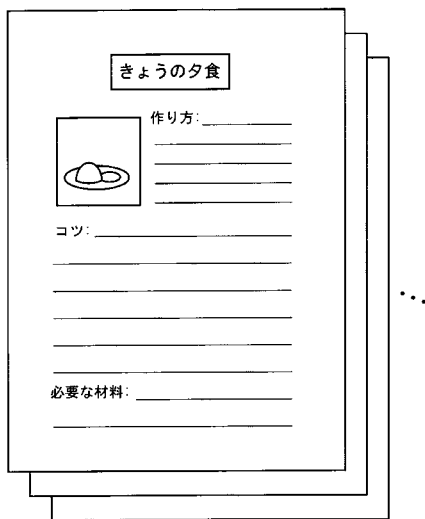 きょうの夕食
作り方:
コツ:
必要な材料: